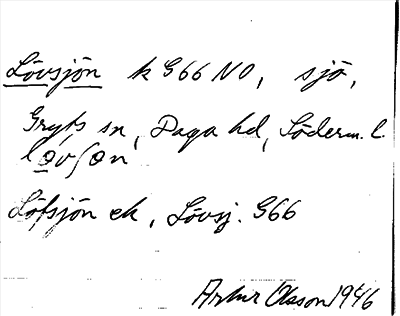 Lövsjön k G66 NO, sjö,
Gryts sn, Daga hd, Söderm. l.
løvʃøn
Löfsjön ek, Lövsj. G66
Artur Olsson 1946